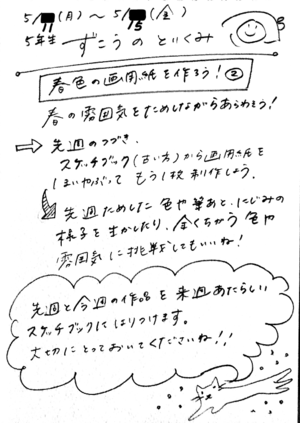 5/11(月)〜5/15(金)
5年生 ずこうのとりくみ
春色の画用紙を作ろう!②
春の雰囲気をためしながらあらわそう!
⇨ 先週のつづき.
スケッチブック(古い方)から画用紙を
1まいやぶって もう1枚制作しよう。
先週ためした色や筆あと、にじみの
様子を生かしたり、全くちがう色や
雰囲気に挑戦してもいいね!
先週と今週の作品を来週あたらしい
スケッチブックにはりつけます。
大切にとっておいてくださいね!!